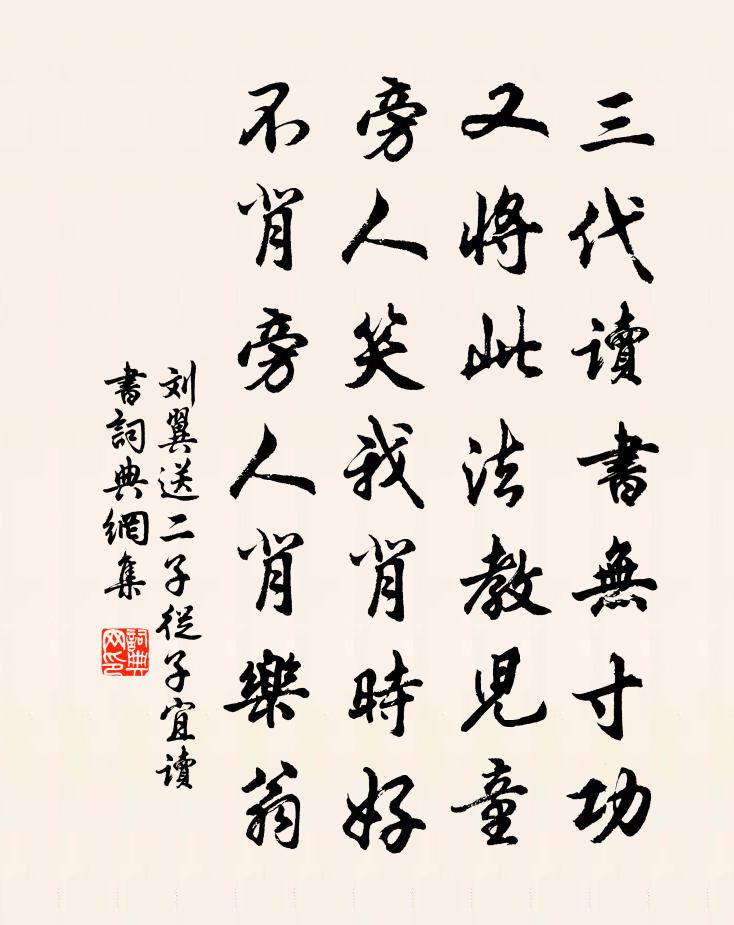 三代讀書無寸功
又將此法教児童
旁人笑我背時好
不背旁人背樂翁
刘翼送二子從子宜读
書詞典網集
詞典网印